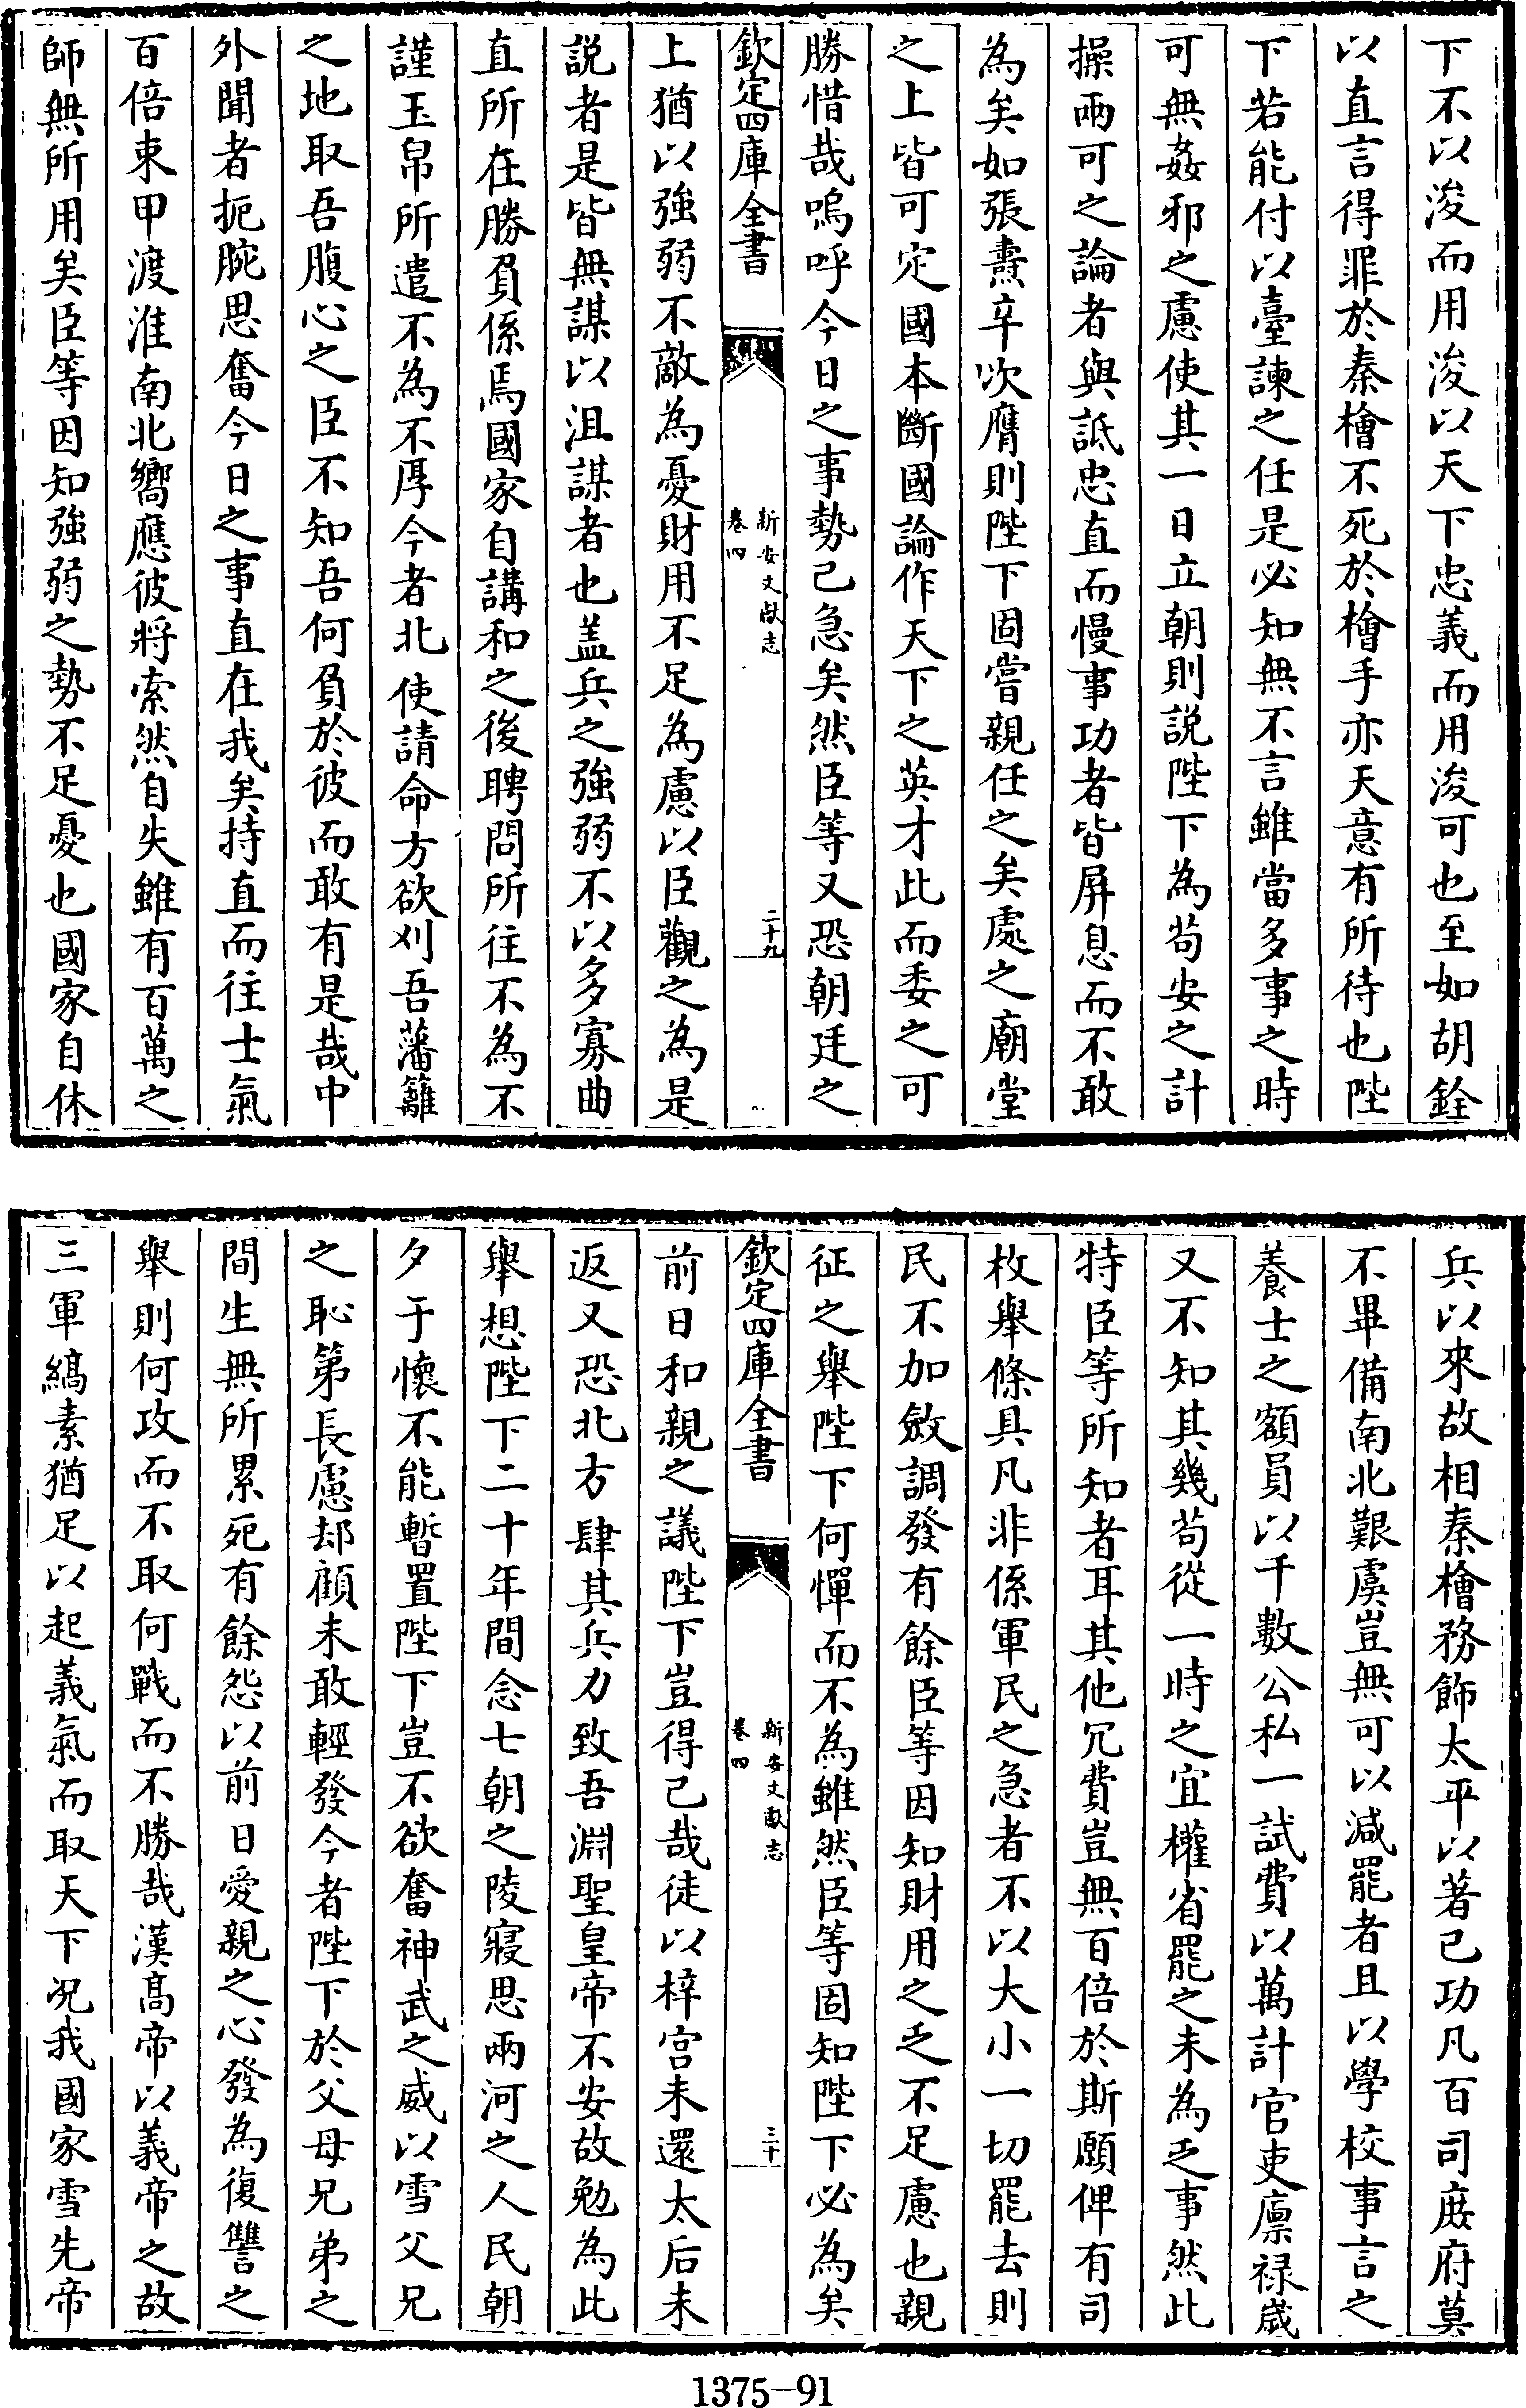 下不以浚而用浚以天下忠義而用浚可也至如胡銓
以直言得罪於秦檜不死於檜手亦天意有所待也陛
下若能付以臺諫之任是必知無不言雖當多事之時
可無姦邪之慮使其一日立朝則説陛下為苟安之計
操兩可之論者與詆忠直而慢事功者皆屏息而不敢
為矣如張燾辛次膺則陛下固嘗親任之矣處之廟堂
之上皆可定國本斷國論作天下之英才此而委之可
勝惜哉嗚呼今日之事勢已急矣然臣等又恐朝廷之
欽定四庫全書
新安文獻志
卷四
二十九
上猶以強弱不敵為憂財用不足為慮以臣觀之為是
説者是皆無謀以沮謀者也盖兵之強弱不以多寡曲
直所在勝負係焉國家自講和之後聘問所往不為不
謹玉帛所遣不為不厚今者北使請命方欲刈吾藩籬
之地取吾腹心之臣不知吾何負於彼而敢有是哉中
外聞者扼腕思奮今日之事直在我矣持直而往士氣
百倍束甲渡淮南北嚮應彼將索然自失雖有百萬之
師無所用矣臣等因知強弱之勢不足憂也國家自休
兵以來故相秦檜務飾太平以著已功凡百司庻府莫
不畢備南北艱虞豈無可以減罷者且以學校事言之
養士之額員以千數公私一試費以萬計官吏廪禄歳
又不知其幾苟從一時之宜權省罷之未為乏事然此
特臣等所知者耳其他冗費豈無百倍於斯願俾有司
枚舉條具凡非係軍民之急者不以大小一切罷去則
民不加斂調發有餘臣等因知財用之乏不足慮也親
征之舉陛下何憚而不為雖然臣等固知陛下必為矣
欽定四庫全書
新安文獻志
卷四
三十
前日和親之議陛下豈得已哉徒以梓宫未還太后未
返又恐北方肆其兵力致吾淵聖皇帝不安故勉為此
舉想陛下二十年間念七朝之陵寢思兩河之人民朝
夕于懷不能暫置陛下豈不欲奮神武之威以雪父兄
之恥第長慮却顧未敢輕發今者陛下於父母兄弟之
間生無所累死有餘怨以前日愛親之心發為復讐之
舉則何攻而不取何戰而不勝哉漢髙帝以義帝之故
三軍縞素猶足以起義氣而取天下况我國家雪先帝
1375—91